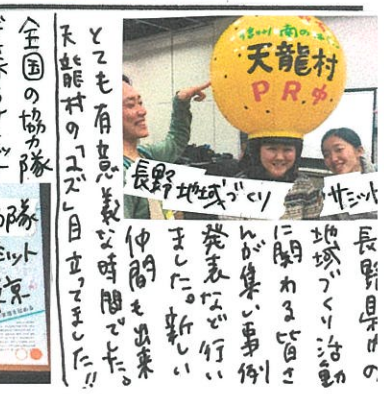 天龍村
PR中
長野 地域づくり サミット
長野県内の
地域づくり活動
に関わる皆さ
んが集い事例
発表など行い
ました。新しい
仲間も出来
とても有意義な時間でした。
天龍村の「ユズ」目立ってました!!
全国の協力隊